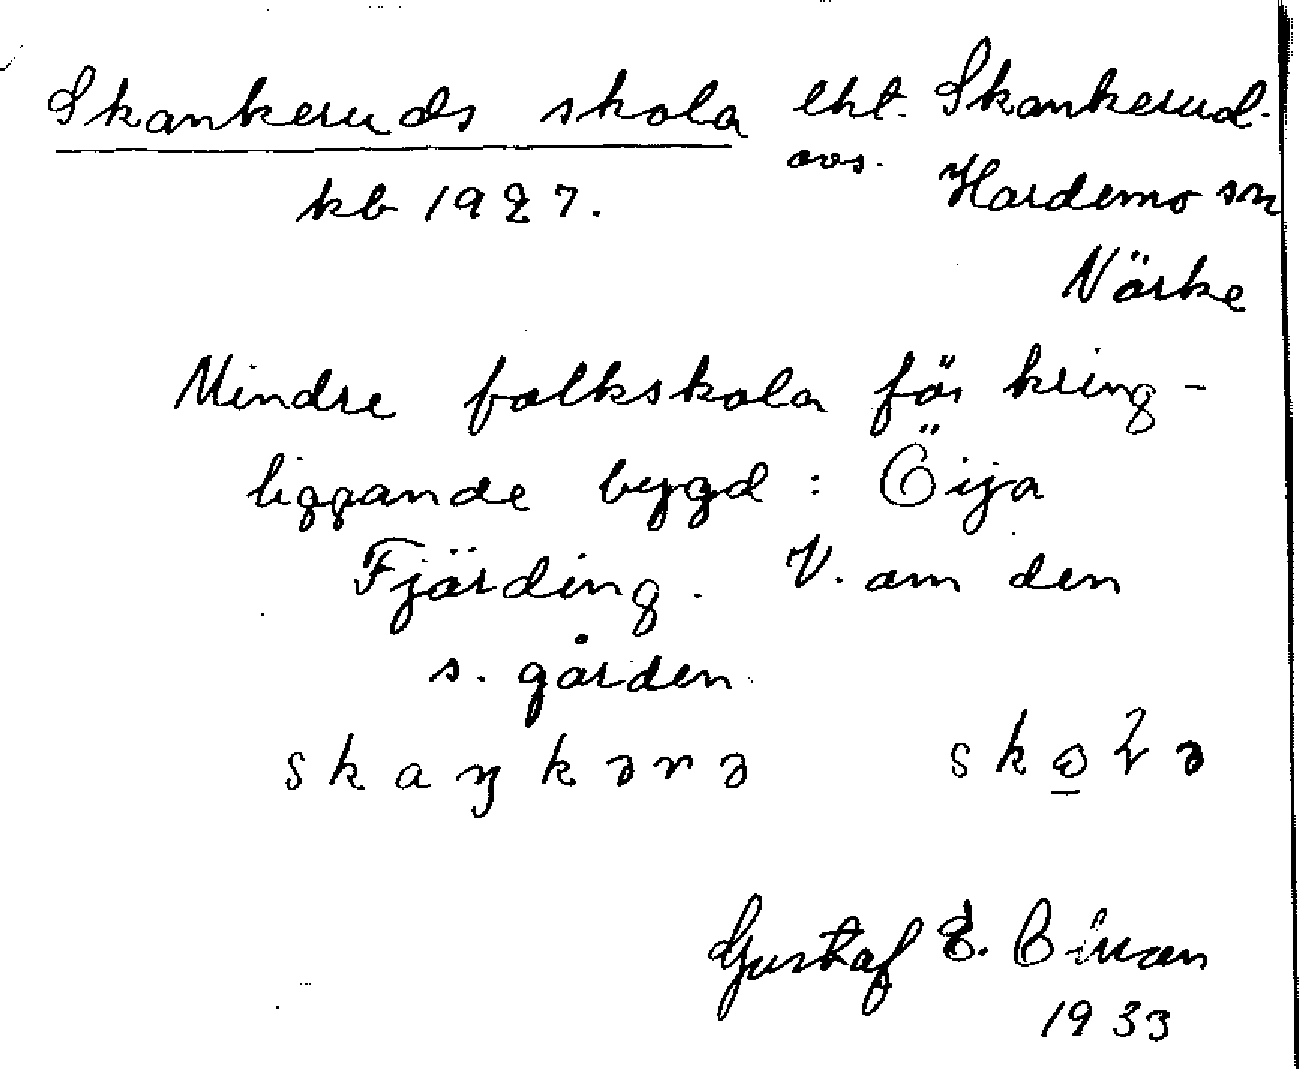 Skankeruds skola eht. Skankerud.
kb 1927. avs. Hardemo sn
Närke
Mindre folkskola för kring-
liggande bygd: Öija
Fjärding. V. om den
s. gården.
skaŋkərə sko̲ɽə
Gustaf E.
1933